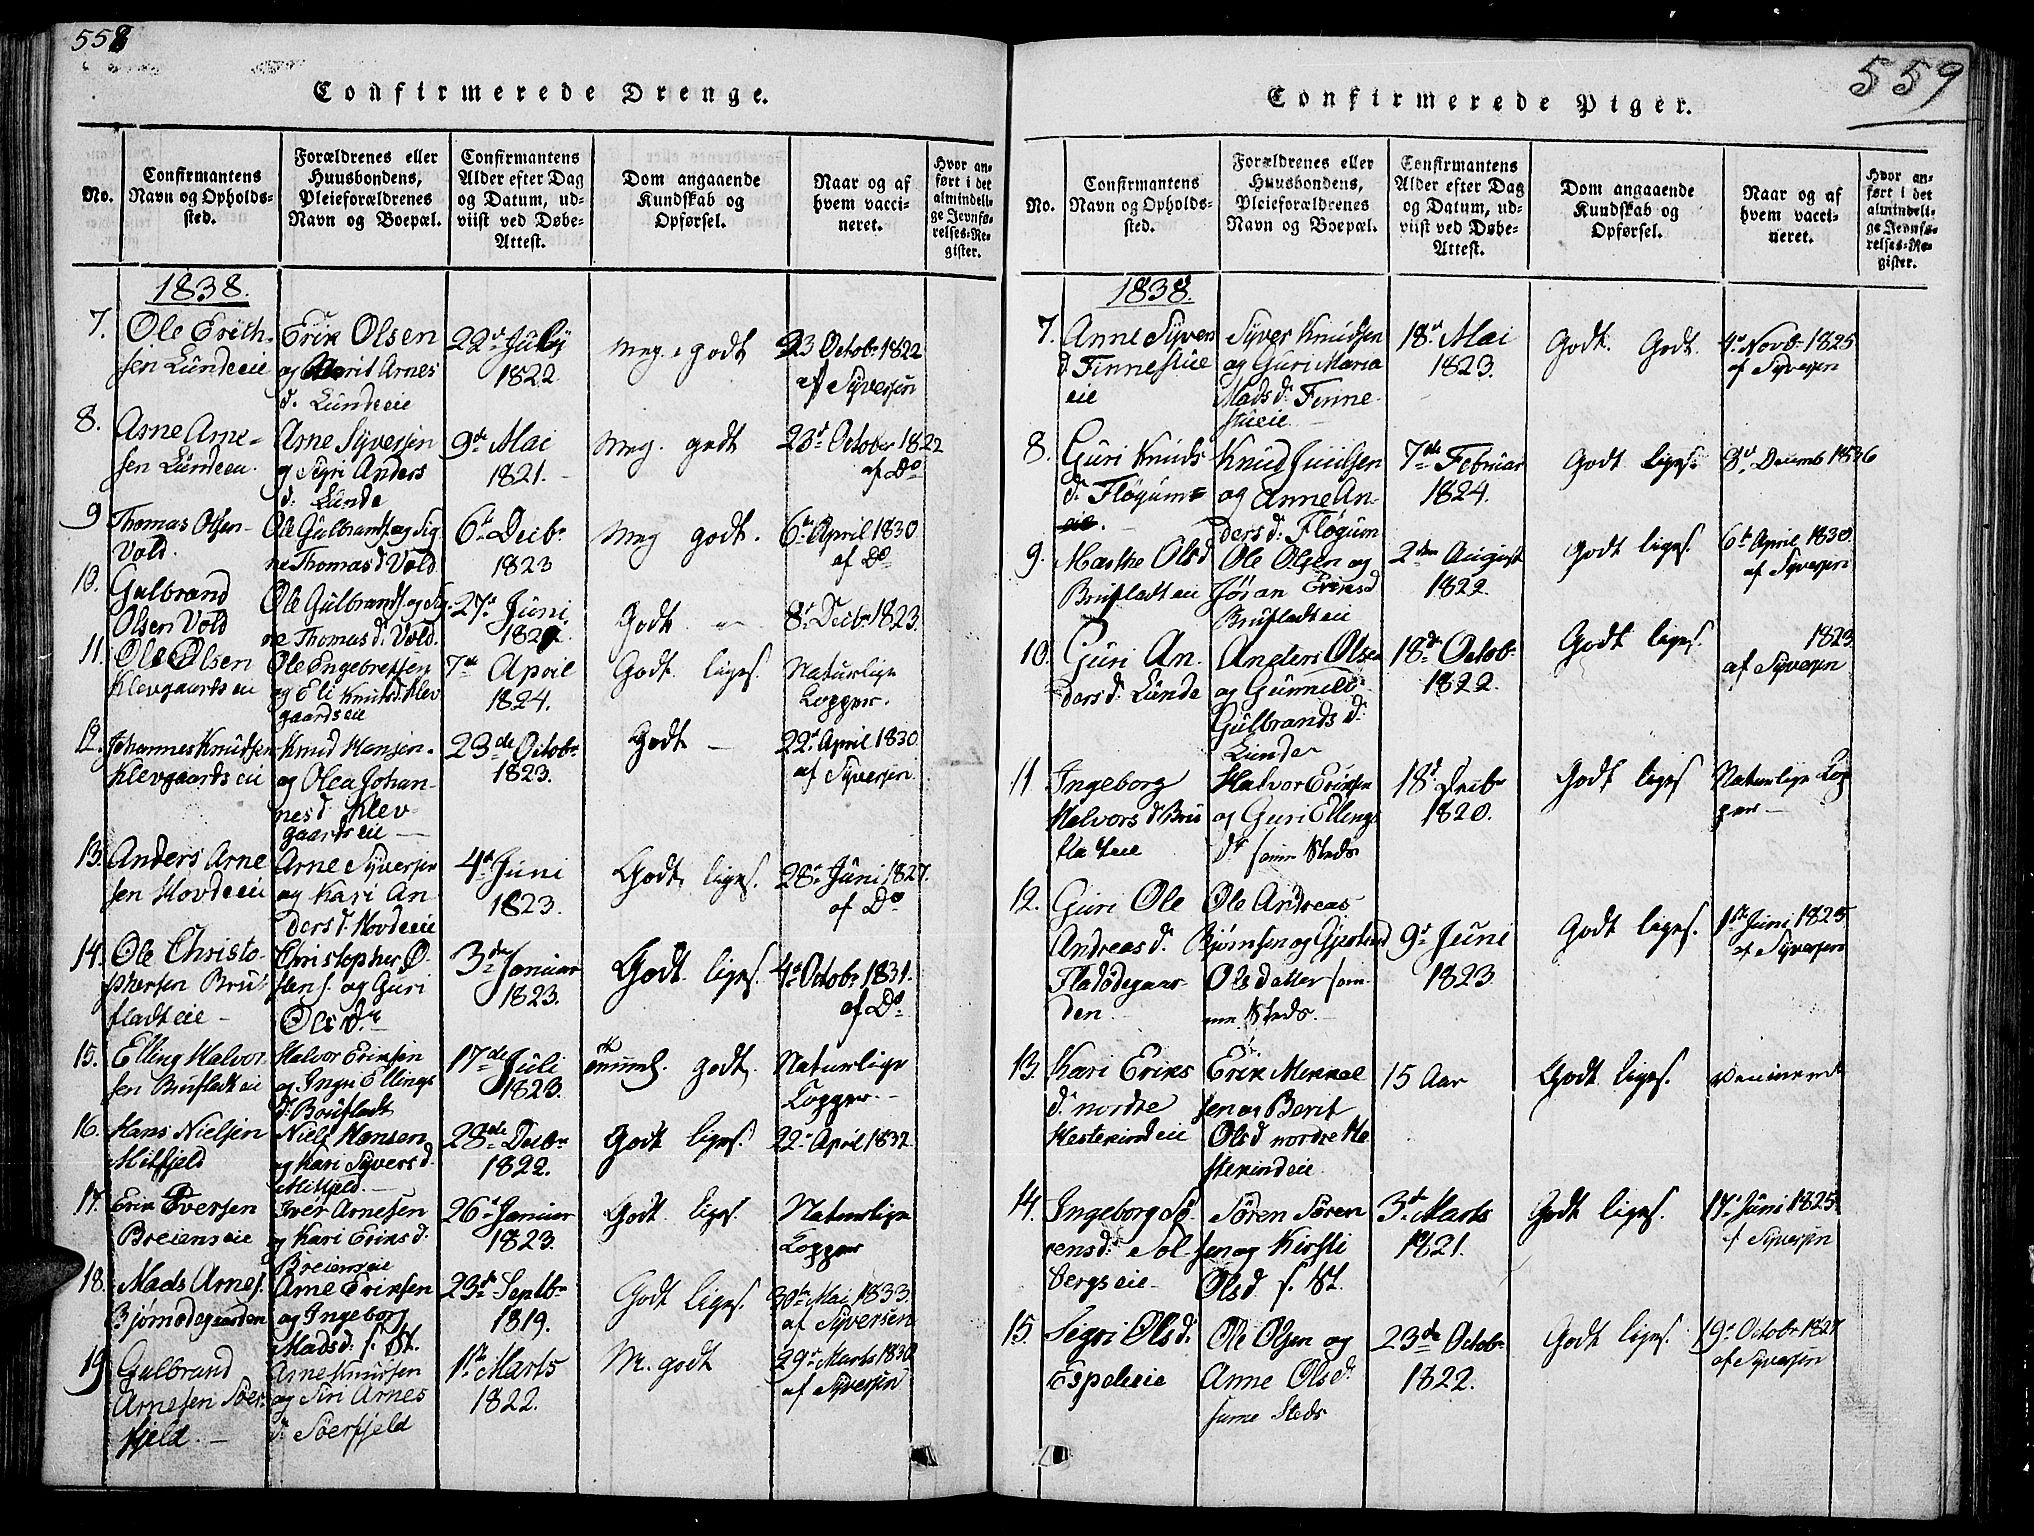 558
Confirmerede Drenge.
No.
Confirmantens
Navn og Opholds-
sted.
Forældrenes eller
Huusbondens,
Pleieforældrenes
Navn og Boepæl.
Confirmantens
Alder efter Dag
og Datum, ud-
viist ved Døbe-
Attest.
Dom angaaende
Kundskab og
Opførsel.
Naar og af
hvem vacci-
neret.
Hvor an-
ført i det
almindeli-
ge Jevnfø-
relses-Re-
gister.
1838.
7.
Ole Erich-
sen Lundeeie
Erik Olsen
og Marit Arnes
d. Lundeeie
22d July
1822
meg. godt
23 Octobr 1822
af Syversen
8.
Arne Arne-
sen Lundeeie.
Arne Syversen
og Sigri Anders
d: Lunde
9de Mai
1821.
Meg. godt
23d October 1822
af Do
9
Thomas Olsen
Vold.
Ole Gulbrands. og Sig
ne Thomas d Vold
6t Decbr
1823
Meg godt.
6te April 1830
af Do
10.
Gulbrand
Olsen Vold
Ole Gulbrands. og Sig-
ne Thomas d: Vold.
27d Juni
Godt
8d Decbr 1823.
11.
Ole Olsen
Klevgaardseie
Ole Engebretsen
og Eli Knuds d. Klev
gaardseie
7de April
1824.
Godt liges.
Naturlige
Kopper.
12.
Johannes Knudsen
Klevgaardseie
Knud Hansen
og Olea Johan-
nes d Klev-
gaardseie
23de Octobr
1823.
Godt
22d April 1830
af Syversen
13.
Anders Arne
sen Hovdeeie
Arne Syversen
og Kari An
ders d. Hovdeeie
4d Juni
1823.
Godt liges.
28d Juni 1827.
af Do
14.
Ole Christo-
phersen Bru-
fladteie
Christopher O-
lsen s. og Guri
Ols dr
3de Januar
1823.
Godt liges.
4d Octobr 1831.
af Do
15.
Elling Halvor
sen Brufladteie
Halvor Eriksen
og Ingri Ellings
d: Brufladt
17de Juli
1823.
godt.
Naturlige
Kopper.
16.
Hans Nielsen
Midfjeld
Niels Hansen
og Kari Syvers d.
Midfjeld.
28de Decbr
1822.
Godt liges.
22d April 1832.
17.
Erik Iversen
Breienseie
Iver Arnesen
og Kari Eriks d:
Breienseie
26d Januar
1823.
Godt liges.
Naturlige
Kopper
18.
Mads Arnes.
Bjørnødegaarden
Arne Eriksen
og Ingeborg
Mads d. s. St.
23de Septbr
1819.
Godt liges.
30te Mai 1833.
af Syversen
19
Gulbrand
Arnesen Sør-
fjeld.
Arne Knutsen
og Siri Arnes
d: Sørfjeld
1ste Marts
1822.
M. godt
29d Marts 1830
af Syversen
559
Confirmerede Piger.
No.
Confirmantens
Navn og Opholds-
sted.
Forældrenes eller
Huusbondens,
Pleieforældrenes
Navn og Boepæl.
Confirmantens
Alder efter Dag
og Datum, ud-
viist ved Døbe-
Attest.
Dom angaaende
Kundskab og
Opførsel.
Naar og af
hvem vacci-
neret.
Hvor an-
ført i det
almindeli-
ge Jevnfø-
relses-Re-
gister.
1838.
7.
Anne Syvers
d Finnestue
eie
Syver Knudsen
og Guri Maria
Mads d: Finne-
stueeie.
18d Mai
1823.
Godt. Godt.
4d Novb. 1825
af Syversen
8.
Guri Knuds
d. Fløgum
Knud Juulsen
og Anne An-
ders d: Fløgum
7de Februar
1824.
Godt liges.
3d Decemb 1836
9.
Marthe Ols d
Brufladteie
Ole Olsen og
Jøran Eriks d
Brufladteie
2den August
1822.
Godt liges.
6te April 1830.
af Syversen
10.
Guri An-
ders d. Lunde
Anders Olsen
og Gunnild
Gulbrands d:
Lunde
18de Octob
1822.
Godt liges.
1823
af Syversen
11
Ingeborg
Halvors d Bru
fladteie
Halvor Eriksen
og Guri Ellings
dr samme Steds
18d Decbr
1820.
Godt liges
Naturlige Kop
per
12.
Guri Ole
Andreas d.
Fladødegaar-
den
Ole Andreas
Bjørnsen og Gjertrud
Ols datter sam-
me Steds.
9d Juni
1823.
Godt liges.
1ste Juni 1825
af Syversen
13.
Kari Eriks
d. nordre
Hestekindeie
Erik Mikkel
sen og Berit
Ols d nordre He
stekindeie
15 Aar
Godt liges.
Vaccineret
14.
Ingeborg Sø-
rens d: Sol-
bergseie
Søren Søren
sen og Kirsti
Ols d. s. St.
3d Marts
1821.
Godt liges.
17d Juni 1825.
af Syversen
15.
Sigri Ols d.
Espelieie
Ole Olsen og
Anne Ols d.
samme Steds
23de Octobr
1822.
Godt liges.
19d Octobr 1827
af Syversen